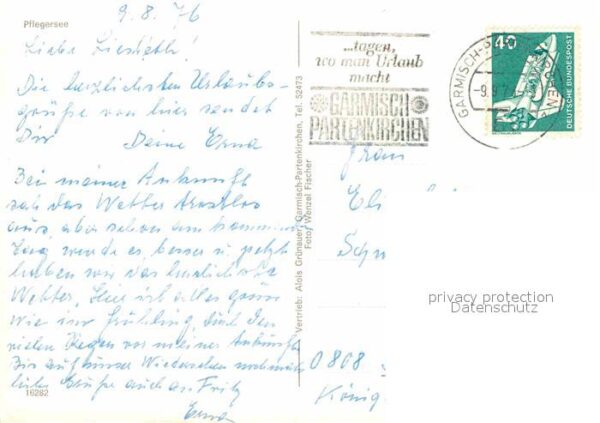 9. 8. 76
Pflegersee
Liebe Liesbeth!
Die herzlichsten Urlaubs-
grüße von hier sendet
Dir Deine Erna
Bei meiner Ankunft
sah das Wetter trostlos
aus, aber schon am kommenden
Tag wurde es besser u. jetzt
haben wir das herrlichste
Wetter, hier ist alles grün
wie im Frühling, durch den
vielen Regen vor meiner Ankunft
Bis auf unser Wiedersehen nochmals
liebe Grüße auch an Fritz
Erna
16282
Vertrieb: Alois Grünauer, Garmisch-Partenkirchen, Tel. 52473
Foto: Wenzel Fischer
...tagen,
wo man Urlaub
macht
GARMISCH
PARTENKIRCHEN
GARMISCH-
-9.
40
DEUTSCHE BUNDESPOST
Frau
Eli
Sch
privacy protection
Datenschutz
König